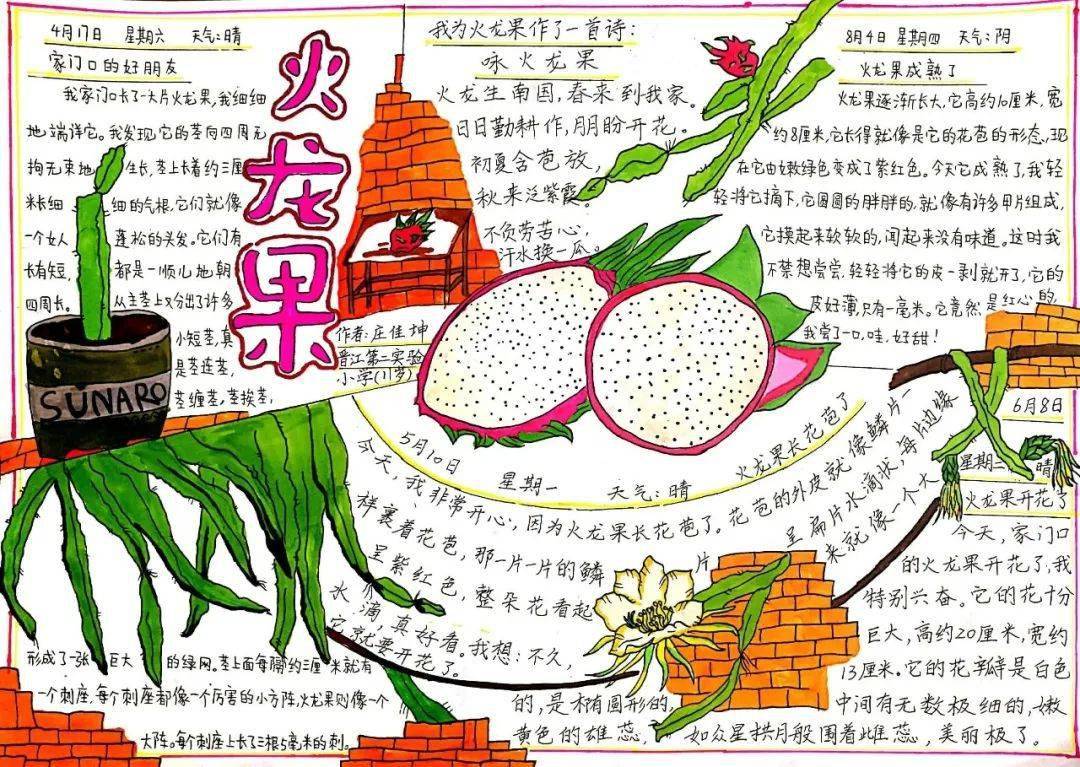 4月17日 星期六 天气:晴
家门口的好朋友
我家门口长了一大片火龙果,我细细
地端详它。我发现,它的茎向四周无
拘无束地生长,茎上长着约三厘
米长细细的气根,它们就像
一个女人蓬松的头发。它们有
长有短,都是一顺儿地朝
四周长。从主茎上又分出了许多
小短茎,真
是茎连茎,
茎缠茎,茎挨茎,
形成了一张巨大的绿网。茎上面每隔约三厘米就有
一个刺座,每个刺座都像一个厉害的小方阵,火龙果则像一个
大阵。每个刺座上长了三根5毫米的刺。
SUNARO
火龙果
我为火龙果作了一首诗:
咏火龙果
火龙生南国,春来到我家。
日日勤耕作,朋盼开花。
初夏含苞放,
秋来泛紫霞。
不负劳苦心,
汗水换一瓜。
作者:庄佳坤
晋江第二实验
小学(11岁)
5月10日 星期一 天气:晴 火龙果长花苞了
今天,我非常开心,因为火龙果长花苞了。花苞的外皮就像鳞片一
样裹着花苞,那一片一片的鳞片呈扁片水滴状,每片边缘
呈紫红色,整朵花看起来就像一个大
水滴,真好看。我想:不久,
它就要开花了。
6月8日
星期二 晴
火龙果开花了
今天,家门口
的火龙果开花了,我
特别兴奋。它的花十分
巨大,高约20厘米,宽约
13厘米。它的花瓣是白色
的,是椭圆形的,中间有无数极细的,嫩
黄色的雄蕊,如众星拱月般围着雌蕊,美丽极了。
8月4日 星期四 天气:阴
火龙果成熟了
火龙果逐渐长大,它高约10厘米,宽
约8厘米,它长得就像是它的花苞的形态,现
在它由嫩绿色变成了紫红色。今天它成熟了,我轻
轻将它摘下,它圆圆的胖胖的,就像有许多甲片组成,
它摸起来软软的,闻起来没有味道。这时我
不禁想尝尝,轻轻将它的皮一剥就开了,它的
皮好薄,只有一毫米。它竟然是红心的,
我尝了一口,哇,好甜!